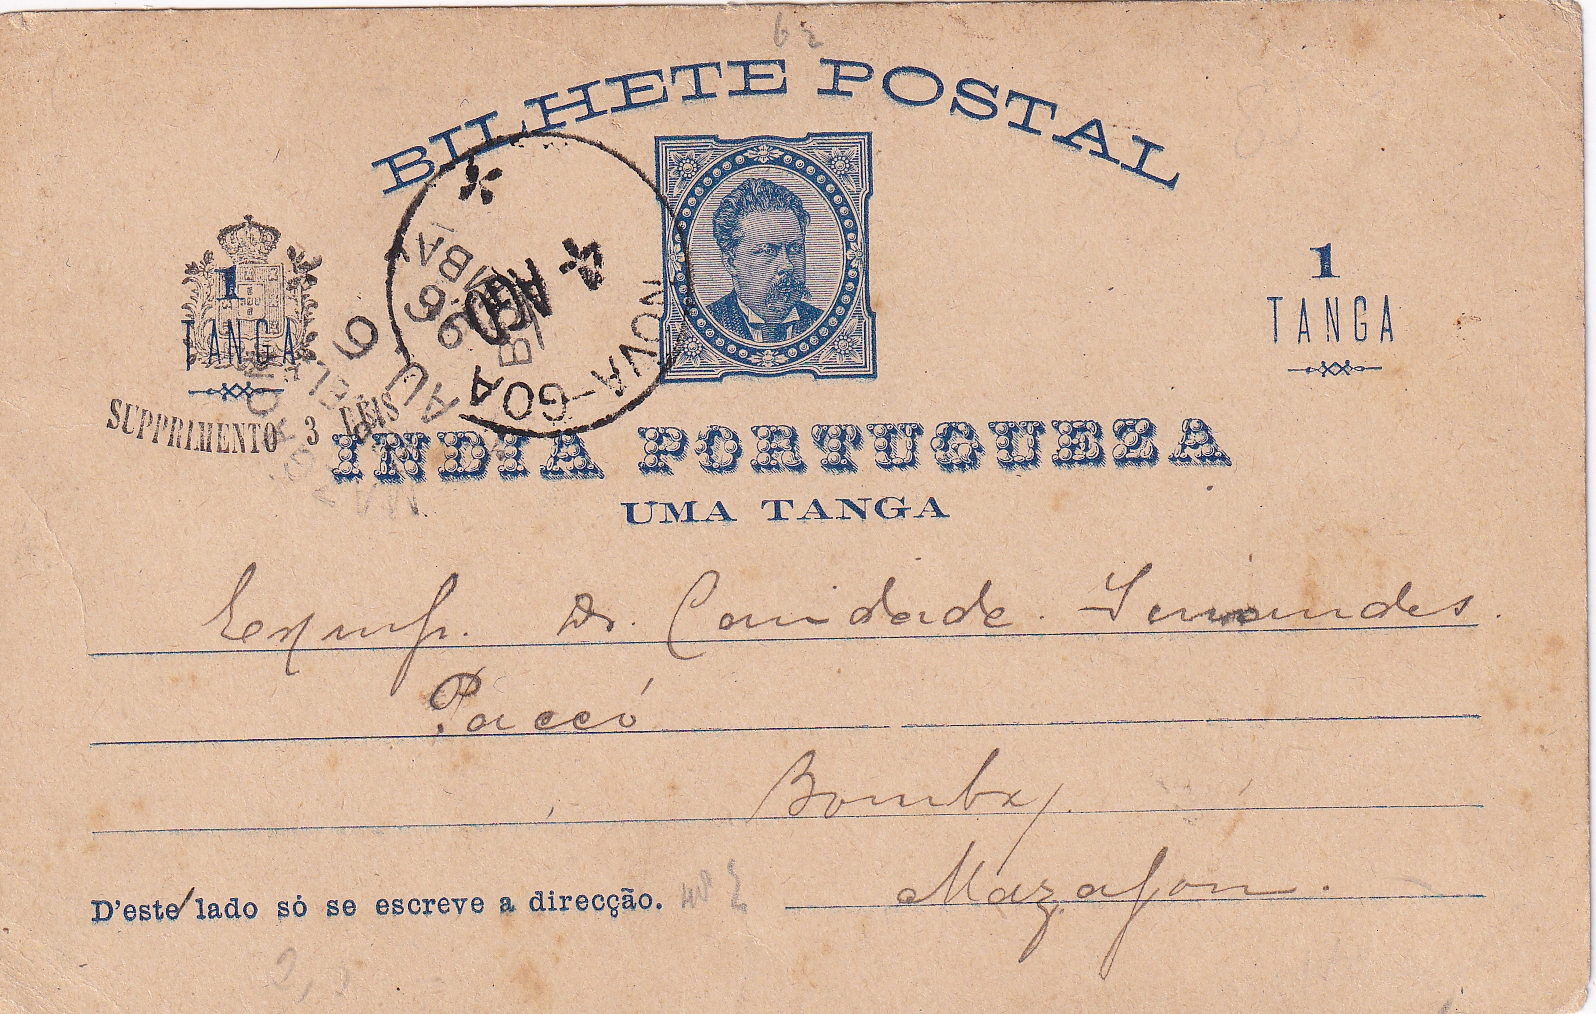 BILHETE POSTAL
1
TANGA
1
TANGA
SUPPRIMENTO 3 REIS
NOVA-GOA
4
AGO
BOMBAY
AU 6
96
INDIA PORTUGUEZA
UMA TANGA
Dr. Caridade
Paccó
Bombay
Mazagon.
D'este lado só se escreve a direcção.